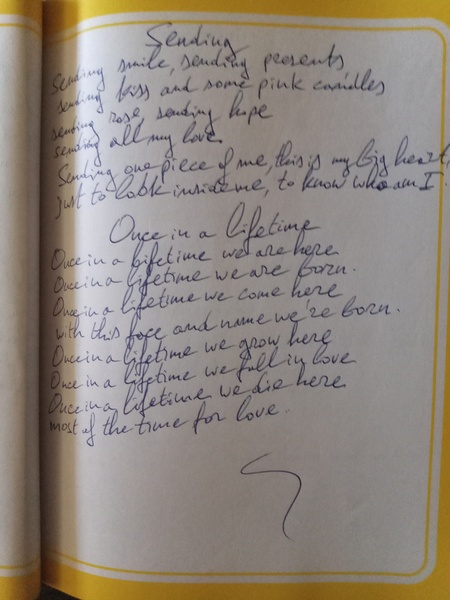 Sending
Sending smile, sending presents
sending kiss and some pink candles
sending rose, sending hope
sending all my love.
Sending one piece of me, this is my big heart,
just to look inside me, to know who am I.
Once in a lifetime
Once in a lifetime we are here
Once in a lifetime we are born.
Once in a lifetime we come here
with this face and name we're born.
Once in a lifetime we grow here
Once in a lifetime we fall in love
Once in a lifetime we die here
most of the time for love.